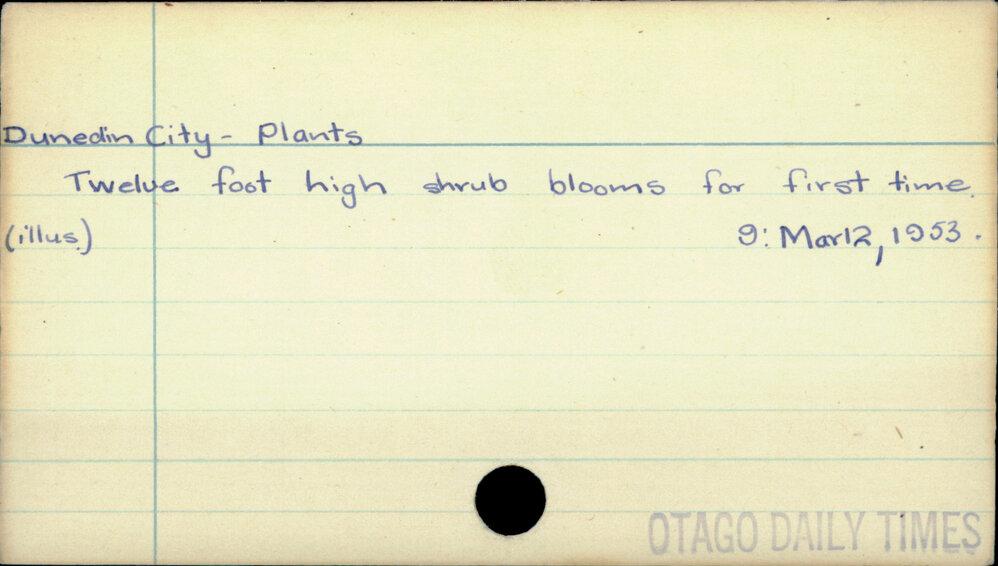 Dunedin City - Plants
Twelve foot high shrub blooms for first time.
(illus.) 9: Mar 12, 1953.
OTAGO DAILY TIMES